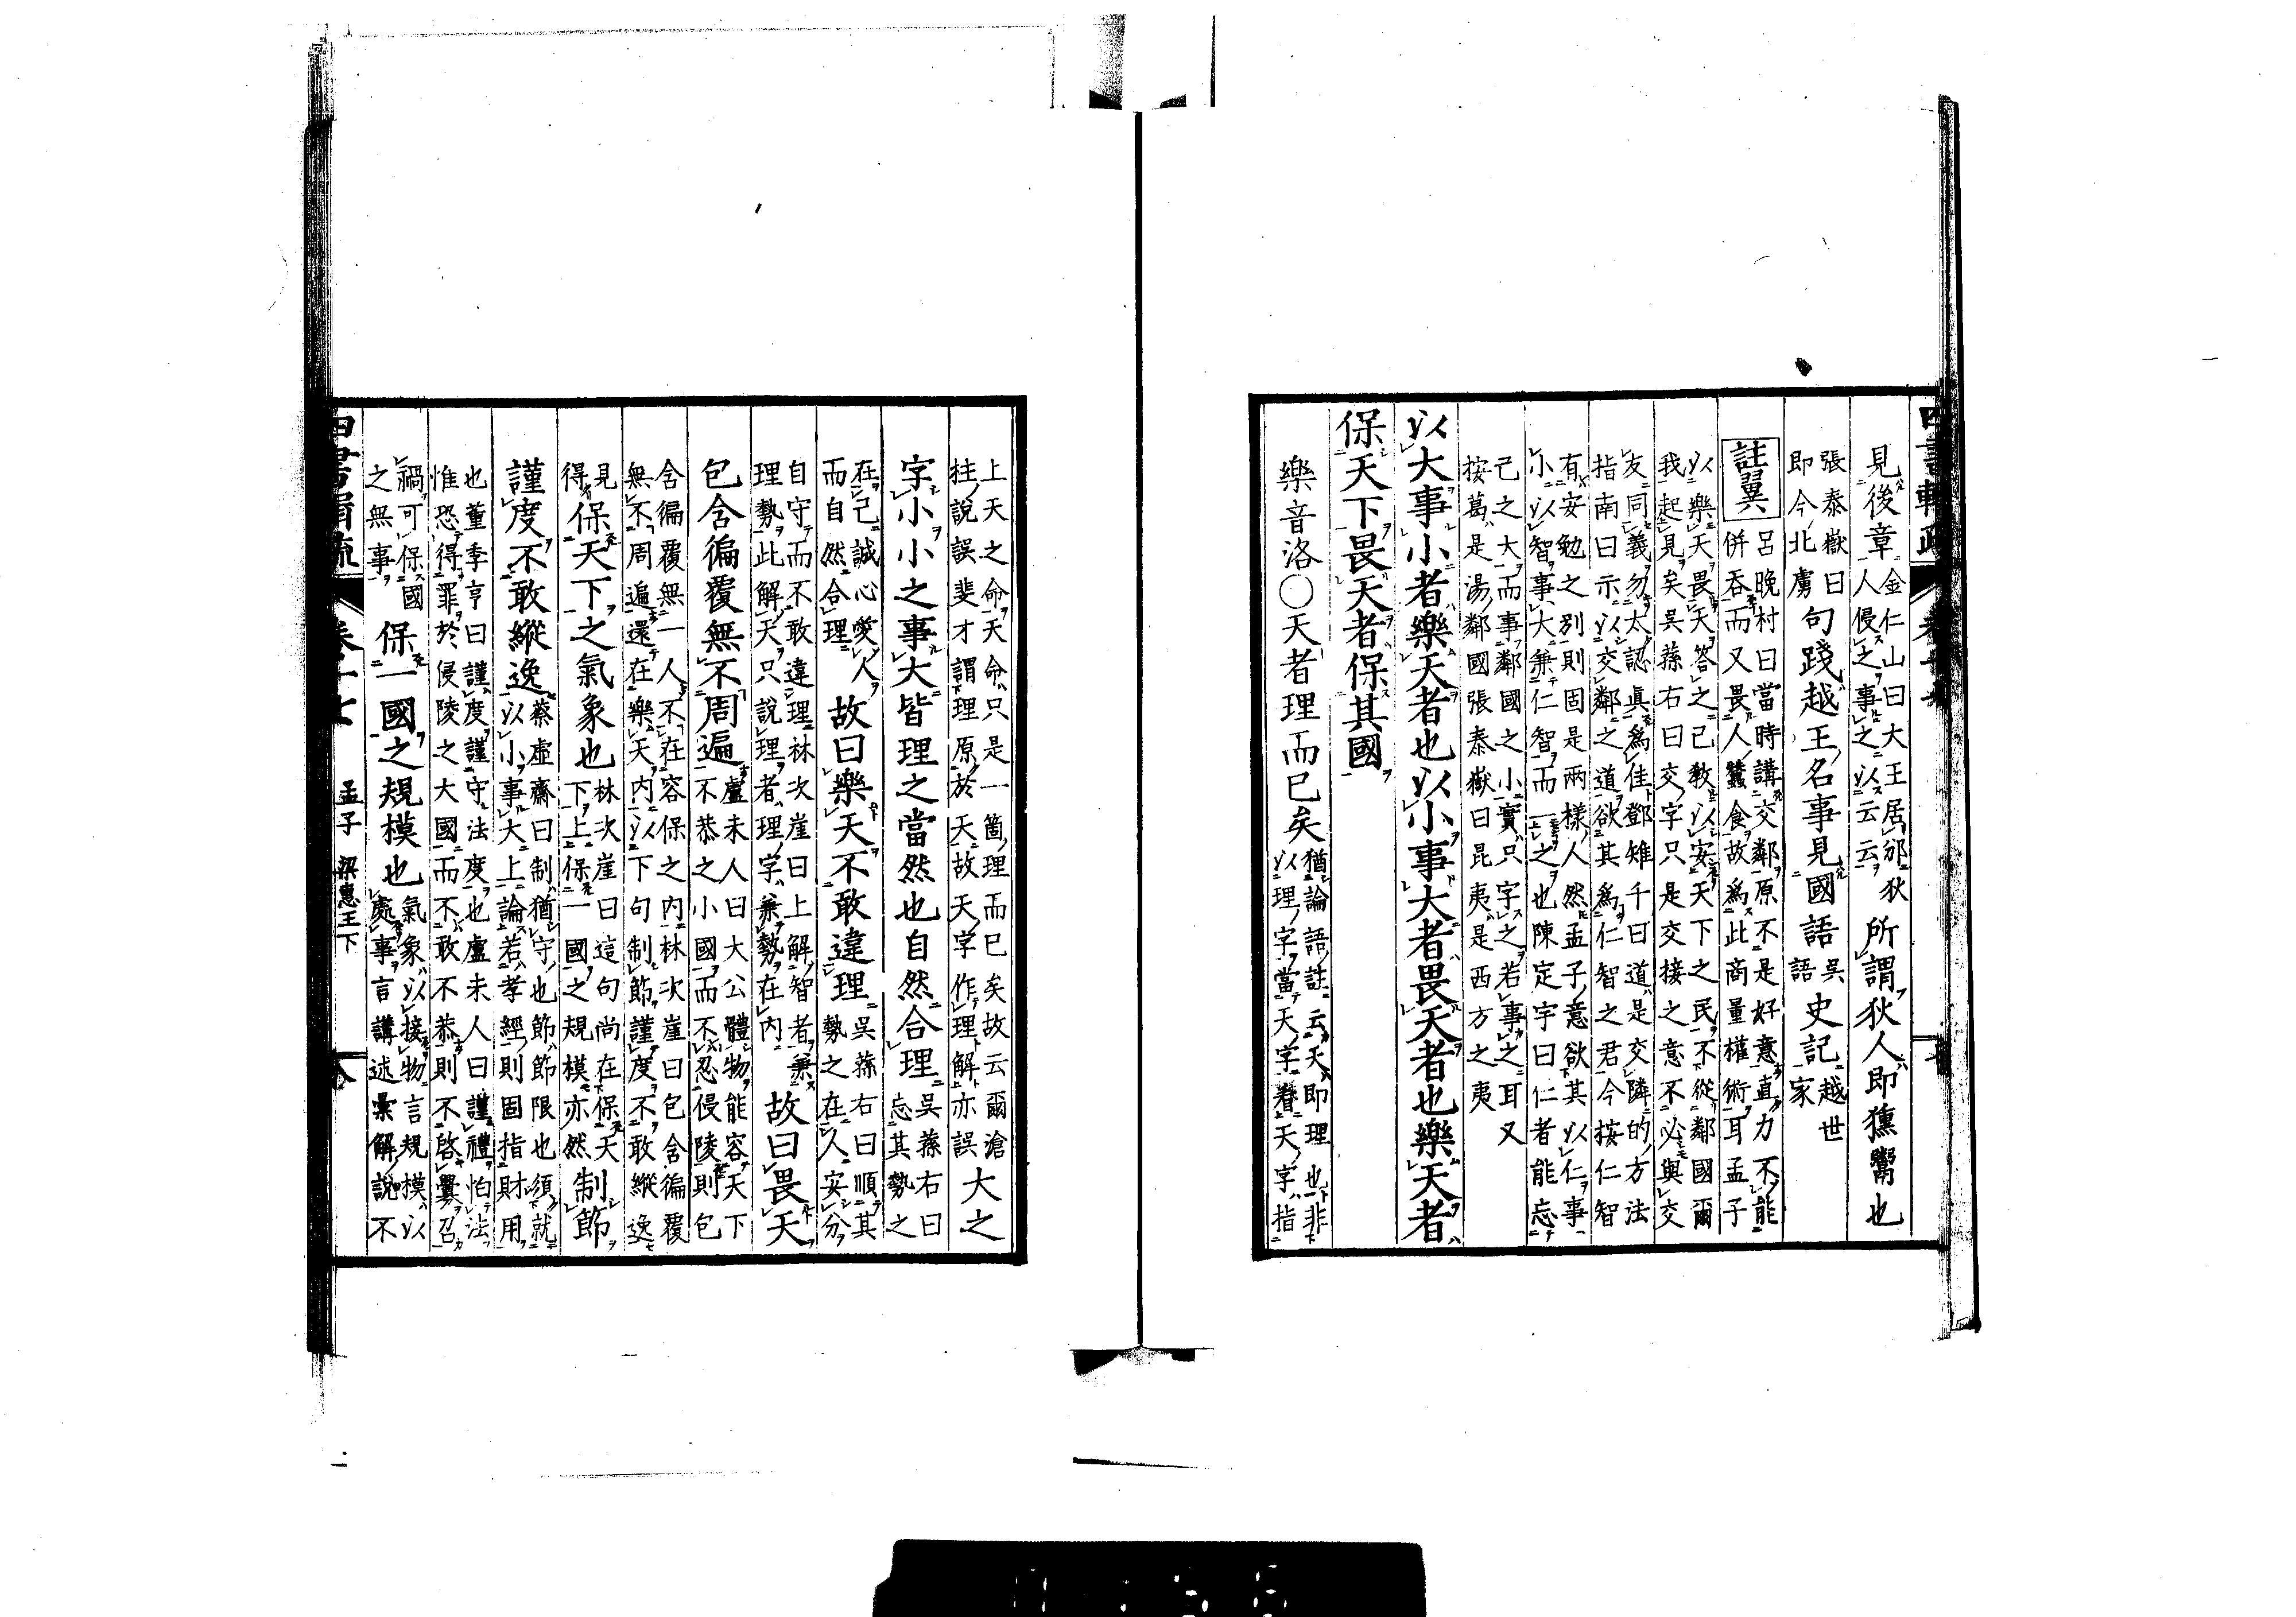 見後章金仁山曰大王居邠狄
人侵之事之以云云所謂狄人即獯鬻也
張泰嶽曰
即今北虜句踐越王名事見國語吳
語史記越世
家
註翼呂晚村曰當時講交鄰原不是好意直力不能
併吞而又畏人蠶食故為此商量權術耳孟子
以樂天畏天答之已教以安天下之民不從鄰國爾
我起見矣吳蓀右曰交字只是交接之意不必與交
友同義勿太認真為佳鄧雉千曰道是交隣的方法
指南曰示以交鄰之道欲其為仁智之君今按仁智
有安勉之別則固是兩樣人然孟子意欲其以仁事
小以智事大兼仁智而一之也陳定宇曰仁者能忘
己之大而事鄰國之小實只字之若事之耳又
按葛是湯鄰國張泰嶽曰昆夷是西方之夷
以大事小者樂天者也以小事大者畏天者也樂天者
保天下畏天者保其國
樂音洛○天者理而已矣猶論語註云天即理也非
以理字當天字看天字指
上天之命天命只是一箇理而已矣故云爾滄
柱說誤斐才謂理原於天故天字作理解亦誤大之
字小小之事大皆理之當然也自然合理吳蓀右曰
忘其勢之
在己誠心愛人
而自然合理故曰樂天不敢違理吳蓀右曰順其
勢之在人安分
自守而不敢違理林次崖曰上解智者兼
理勢此解天只說理者理字兼勢在內故曰畏天
包含徧覆無不周遍盧未人曰大公體物能容天下
不恭之小國而不忍侵陵則包
含徧覆無一人不在容保之內林次崖曰包含徧覆
無不周遍還在樂天內以下句制節謹度不敢縱逸
見
得保天下之氣象也林次崖曰這句尚在保天
下上保一國之規模亦然制節
謹度不敢縱逸蔡虛齋曰制猶守也節節限也須就
以小事大上論若孝經則固指財用
也董季亨曰謹度謹守法度也盧未人曰謹禮怕法
惟恐得罪於侵陵之大國而不敢不恭則不啓釁召
禍可保國
之無事保一國之規模也氣象以接物言規模以
處事言講述彙解說不
孟子 梁惠王下